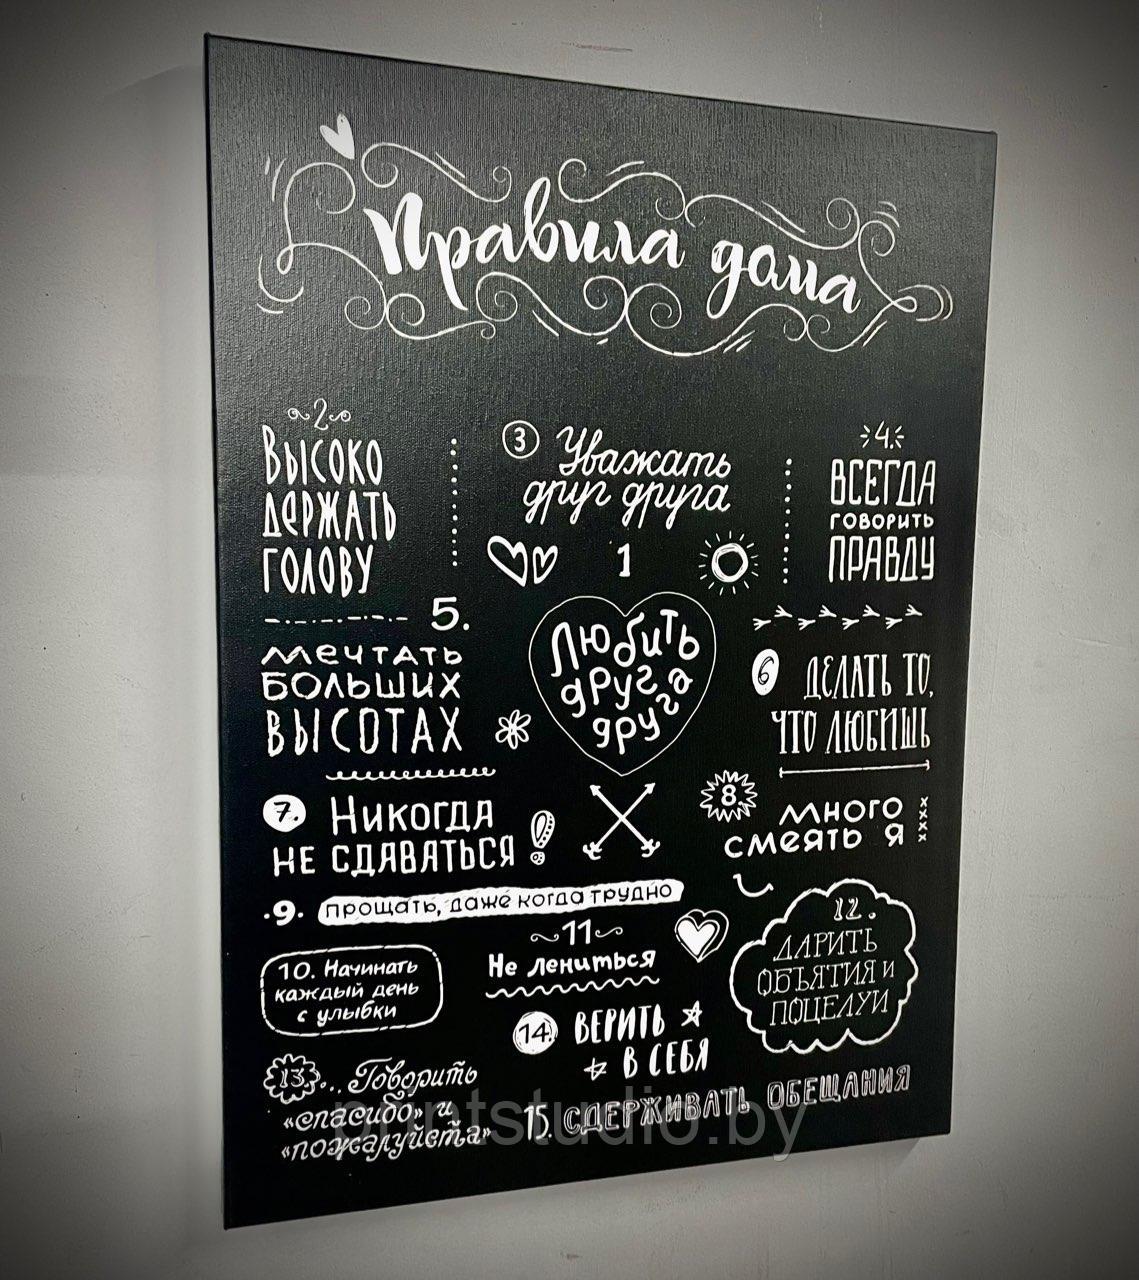 Правила дома
2
ВЫСОКО
ДЕРЖАТЬ
ГОЛОВУ
3 Уважать
друг друга
4.
ВСЕГДА
ГОВОРИТЬ
ПРАВДУ
1
Любить
друг
друга
5.
МЕЧТАТЬ
БОЛЬШИХ
ВЫСОТАХ
6 ДЕЛАТЬ ТО,
ЧТО ЛЮБИШЬ
7. НИКОГДА
НЕ СДАВАТЬСЯ!
8. МНОГО
СМЕЯТЬ Я
.9. ПРОЩАТЬ, ДАЖЕ КОГДА ТРУДНО
10. Начинать
каждый день
с улыбки
11
Не лениться
12.
ДАРИТЬ
ОБЪЯТИЯ И
ПОЦЕЛУИ
13... Говорить
«спасибо» и
«пожалуйста»
14. ВЕРИТЬ
В СЕБЯ
15. СДЕРЖИВАТЬ ОБЕЩАНИЯ
printstudio.by